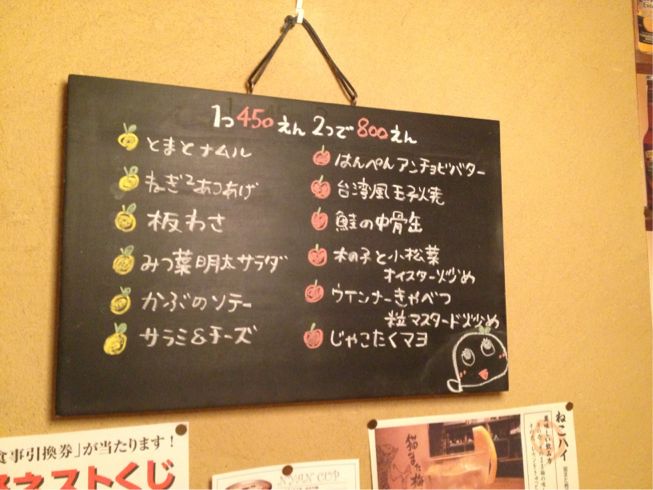 1つ450えん 2つで800えん
とまとナムル
ねぎ2あつあげ
板わさ
みつ葉明太サラダ
かぶのソテー
サラミ&チーズ
はんぺんアンチョビバター
台湾風玉子焼
鮭の中骨缶
木の子と小松菜
オイスター炒め
ウインナーきゃべつ
粒マスタード炒め
じゃこたくマヨ
食事引換券」が当たります!
ネストくじ
NYAN CUP
ねこハイ
美味しい飲み方